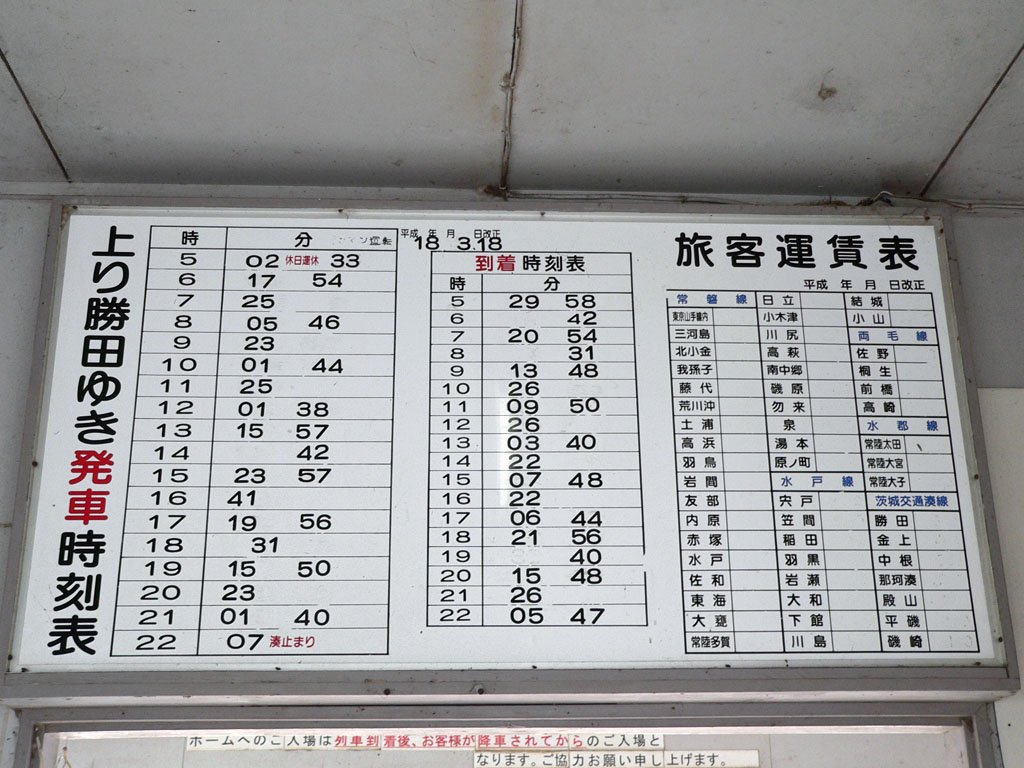 上り勝田ゆき発車時刻表
時 分 ン運転
5 02 休日運休 33
6 17 54
7 25
8 05 46
9 23
10 01 44
11 25
12 01 38
13 15 57
14 42
15 23 57
16 41
17 19 56
18 31
19 15 50
20 23
21 01 40
22 07 湊止まり
平成 18 年 3 月 18 日改正
到着時刻表
時 分
5 29 58
6 42
7 20 54
8 31
9 13 48
10 26
11 09 50
12 26
13 03 40
14 22
15 07 48
16 22
17 06 44
18 21 56
19 40
20 15 48
21 26
22 05 47
旅客運賃表
平成 年 月 日改正
常磐線 日立 結城
東京山手線内 小木津 小山
三河島 川尻 両毛線
北小金 高萩 佐野
我孫子 南中郷 桐生
藤代 磯原 前橋
荒川沖 勿来 高崎
土浦 泉 水郡線
高浜 湯本 常陸太田
羽鳥 原ノ町 常陸大宮
岩間 水戸線 常陸大子
友部 宍戸 茨城交通湊線
内原 笠間 勝田
赤塚 稲田 金上
水戸 羽黒 中根
佐和 岩瀬 那珂湊
東海 大和 殿山
大甕 下館 平磯
常陸多賀 川島 磯崎
ホームへのご入場は列車到着後、お客様が降車されてからのご入場と
なります。ご協力お願い申し上げます。